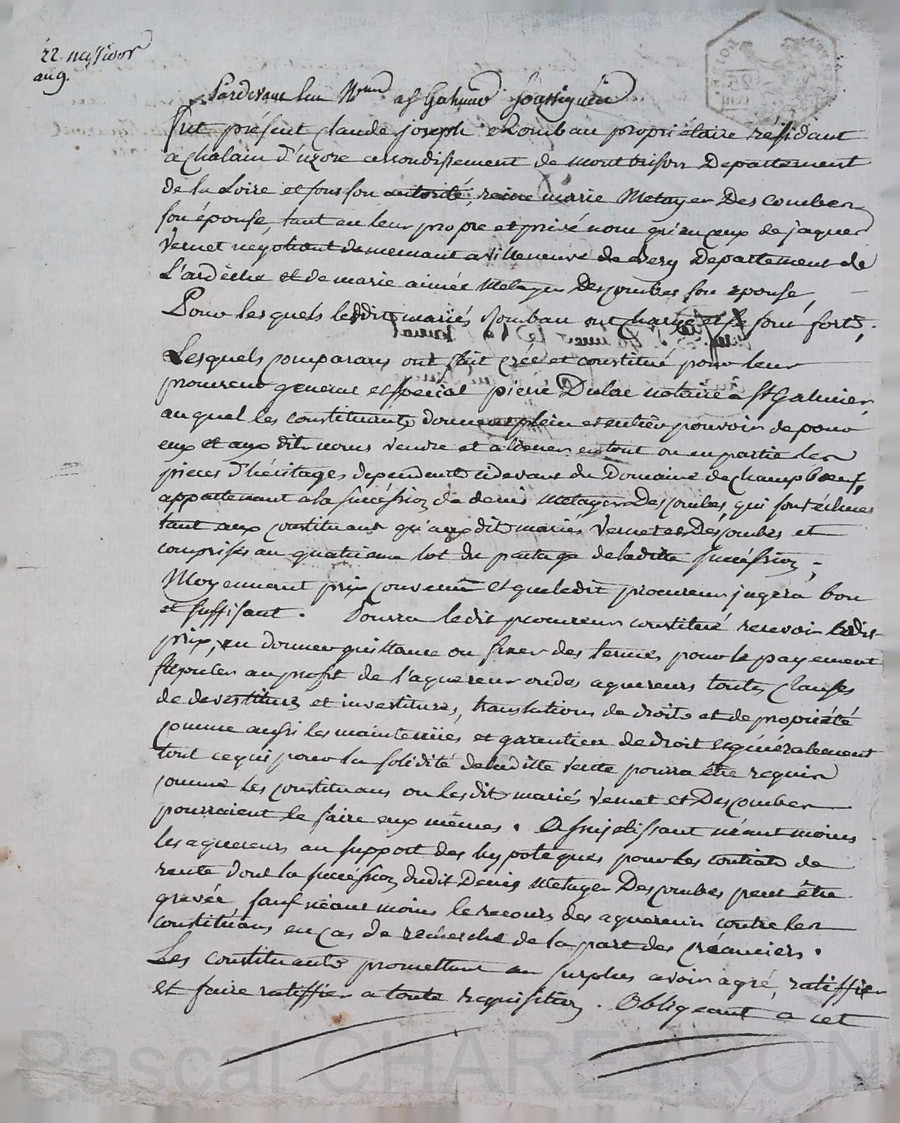 22 messidor
an 9.
Pardevant les No.res à St Galmier soussignés
fut présent Claude Joseph Rombau propriétaire résidant
a Chalain d'uzore arrondissement de montbrison Departement
de la Loire et sous son autorité, reine marie Metayer Descombes
son épouse, tant en leur propre et privé nom qu'en ceux de jaques
Vernet negotiant demeurant a villeneuve de Berg Departement de
L'ardèche et de marie aimée Metayer Descombes son epouse,
Pour lesquels lesdits mariés Rombau ont charge et se font forts;
Lesquels comparans ont fait créé et constitué pour leur
procureur general et special pierre Dulac notaire à St Galmier,
auquel les constituants donnent plein et entier pouvoir de pour
eux et aux dits noms vendre et aliéner en tout ou en partie les
pieces d'héritages dependentes cidevant du Domaine de champ boeuf,
appartenant a la succéssion de denis Metayer Descombes, qui sont échues
tant aux constituans qu'auxdits mariés Vernet et Descombes et
comprises au quatrieme lot du partage de ladite succéssion;
Moyennant prix convenu et que ledit procureur jugera bon
et suffisant. Pourra ledit procureur constitué recevoir ledit
prix, en donner quittance ou fixer des termes pour le payement
stipuler au profit de l'aquereur ou des aquereurs toutes clauses
de devestitures et investitures, translations de droits et de propriété
comme aussi les maintenües et garenties de droit et généralement
tout ce qui pour la solidité de ladite vente pourra être requis
comme les constituans ou lesdits mariés Vernet et Descombes
pourraient le faire eux mêmes. Assujetissant néant moins
les aquereurs au support des hypoteques pour les contrats de
rente dont la succéssion dudit Denis Metayer Descombes peut être
grevée, sauf néant moins le recours des aquereurs contre les
constituans en cas de recherche de la part des créanciers.
Les constituants promettant au surplus avoir agré, ratiffier
et faire ratiffier a toute requisition. Obligeant a cet
Pascal CHAREYRON